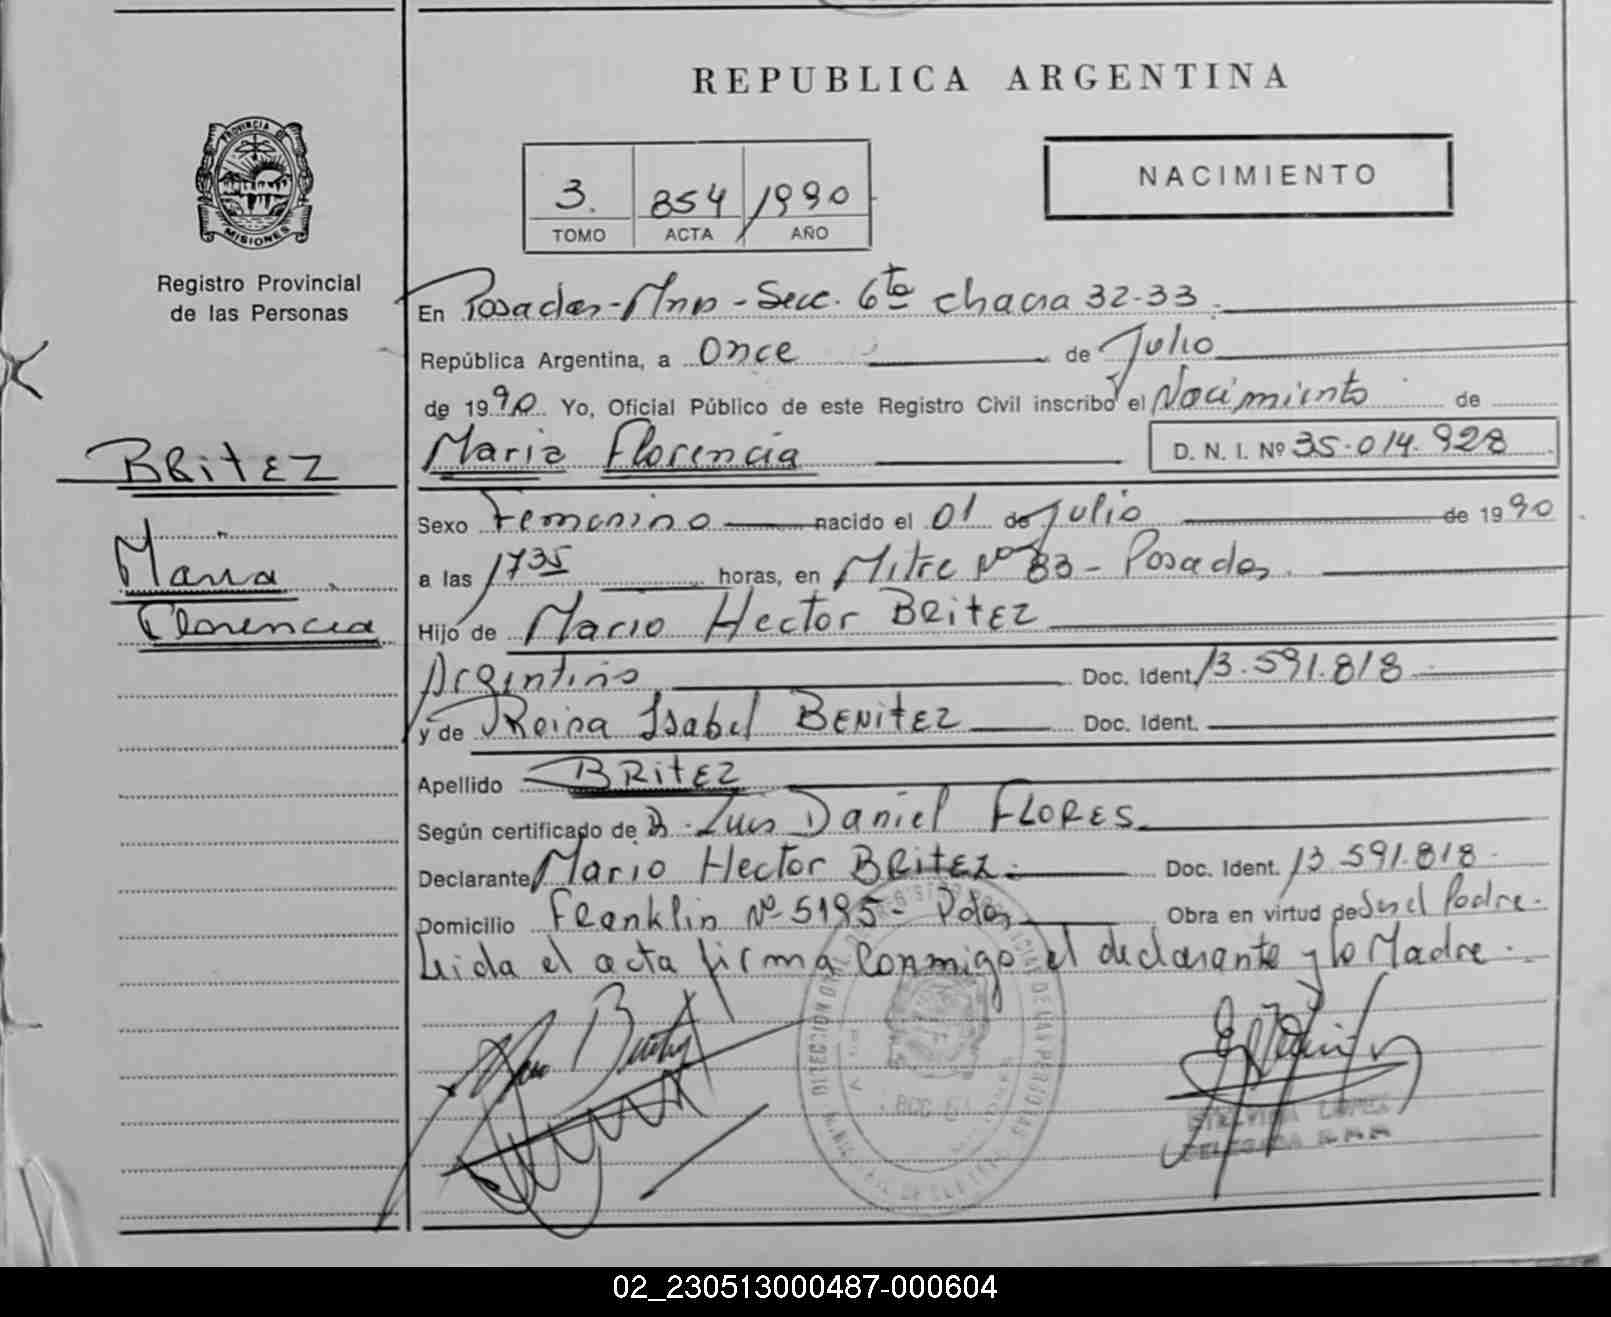 REPUBLICA ARGENTINA
PROVINCIA DE
MISIONES
Registro Provincial
de las Personas
3. 854 1990
TOMO ACTA AÑO
NACIMIENTO
En Posadas-Mnes - Secc. 6ta chacra 32-33
República Argentina, a once de Julio
de 1990. Yo, Oficial Público de este Registro Civil inscribo el Nacimiento de
Maria Florencia D. N. I. Nº 35.014.928
BRITEZ
Maria
Florencia
Sexo Femenino nacido el 01 de Julio de 1990
a las 1735 horas, en Mitre Nº 83 - Posadas.
Hijo de Mario Hector BRITEZ
Argentino Doc. Ident. 13.591.818
y de Reina Isabel BENITEZ Doc. Ident.
Apellido BRITEZ
Según certificado de D. Luis Daniel FLORES.
Declarante Mario Hector BRITEZ. Doc. Ident. 13.591.818
Domicilio Franklin Nº 5195 - Pdas Obra en virtud de Ser el Padre.
Leida el acta firma conmigo el declarante y la Madre.
02_230513000487-000604